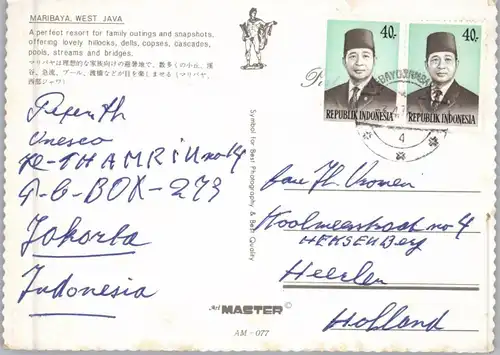 MARIBAYA, WEST JAVA
A perfect resort for family outings and snapshots,
offering lovely hillocks, dells, copses, cascades,
pools, streams and bridges.
マリバヤは理想的な家族向けの避暑地で、数多くの小丘、渓
谷、急流、プール、渡橋などが目を楽しませる(マリバヤ、
西部ジャワ)
Unesco
THAMRIN no 14
BOX-273
Jakarta
Indonesia
Symbol for Best Photography & Best Quality
Art MASTER ©
AM - 077
40.-
REPUBLIK INDONESIA
40.-
REPUBLIK INDONESIA
4
no 4
HEKSENBerg
Heerlen
Holland